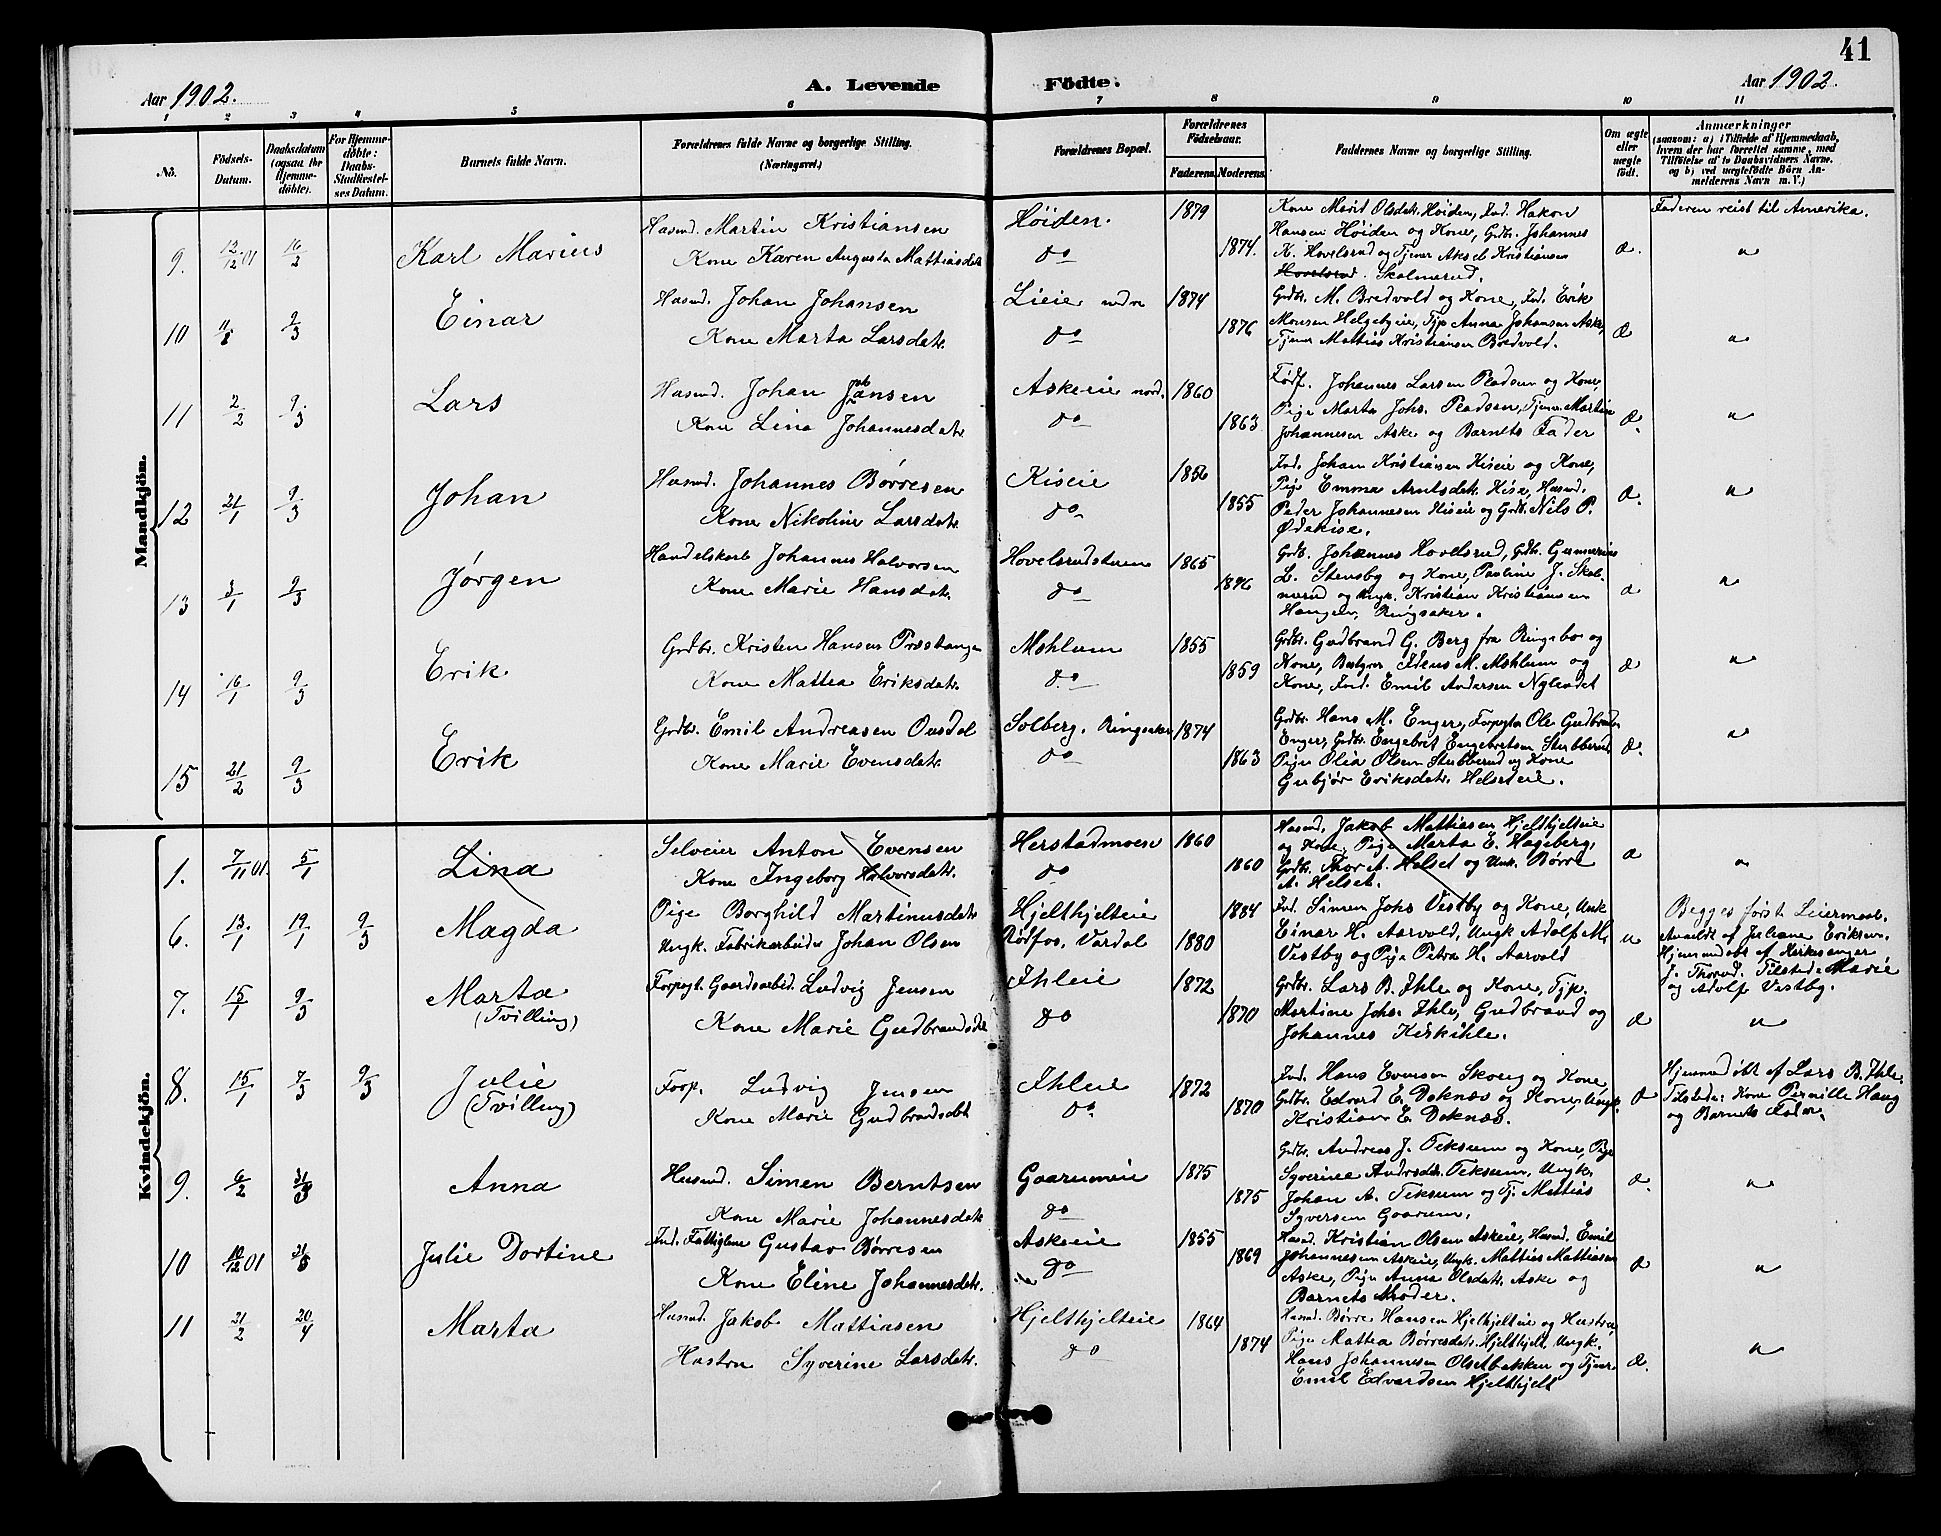 41
Aar 1902. A. Levende Födte. Aar 1902.
1 2 3 4 5 6 7 8 9 10 11
No. Födsels-Datum. Daabsdatum (ogsaa for Hjemmedöbte). For Hjemmedöbte: Daabs-Stadfæstelses Datum. Barnets fulde Navn. Forældrenes fulde Navne og borgerlige Stilling. (Næringsvei.) Forældrenes Bopæl. Forældrenes Födselsaar. Faderens. Moderens. Faddernes Navne og borgerlige Stilling. Om ægte eller uægte födt. Anmærkninger
(saasom: a) i Tilfælde af Hjemmedaab, hvem der har forrettet samme, med Tilföielse af to Daabsvidners Navne, og b) ved uægtefödte Börn Anmelderens Navn m. V.)
Mandkjön.
9. 12/12 01 16/2 Karl Marius
Husmd. Martin Kristiansen
Kone Karen Augusta Mattiasdtr.
Höiden.
do
1879
1874.
Kone Marit Olsdtr. Höiden, Ind. Hakon
Hansen Höiden og Kone, Grdbr. Johannes
K. Hovelsrud og Tjener Aksel Kristiansen
Hovelsrud. Skolmerud.
Æ.
Faderen reist til Amerika.
"
10 9/3 Einar
Husmd. Johan Johansen
Kone Marta Larsdatr.
Lieie nedre
do
1874
1876
Grdbr. M. Bredvold og Kone, Ind. Erik
Monsen Helgebyeie, Tjp Anna Johansen Aske,
Tjener Mattias Kristiansen Bredvold.
Æ
"
11 2/2 9/3 Lars
Husmd. Johan Jansen
Kone Lina Johannesdatr.
Askeeie nord.
do
1860
1863
Johannes Larsen Pladsen og Kone,
Pige Marta Johs. Pladsen, Tjener Martin
Johannesen Aske og Barnets Fader
Æ.
"
12 21/1 9/3 Johan
Husmd. Johannes Børresen
Kone Nikoline Larsdatr.
Kiseie
do
1856
1855
Ind. Johan Kristiansen Kiseie og Kone,
Pige Emma Arntsdtr. Kise, Husmd.
Peder Johannesen Kiseie og Grdbr. Nils P.
Ødekise.
Æ.
"
13 3/1 9/3 Jørgen
Handelskarl Johannes Halvorsen
Kone Marie Hansdatr.
Hovelsrudstuen
do
1865
1876
Grdb. Johannes Hovelsrud, Grdbr. Gunnerius
L. Stensby og Kone, Pauline J. Skol-
merud og Ungk. Kristian Kristiansen
Haugen, Ringsaker.
Æ
"
14 16/1 9/3 Erik
Grdbr. Kristen Hansen Præstangen
Kone Mattea Eriksdatr.
Mæhlum
do
1855
1859
Grdbr. Gudbrand G. Berg fra Ringebo og
Kone, Bestyrer Idens M. Mæhlum og
Kone, Ind. Emil Andersen Nyløkdet
Æ
"
15 21/2 9/3 Erik
Grdbr. Emil Andreasen Ousdal
Kone Marie Evensdatr.
Solberg, Ringsaker
do
1874
1863
Grdbr. Hans M. Enger, Forpagter Ole Gudbrands.
Enger, Grdbr. Engebret Engebretsen Stubberud
Pige Olia Olsen Stubberud og Kone
Gubjør Eriksdatr. Helseteie.
Æ.
"
Kvindekjön.
1. 7/11 01. 5/1 Lina
Selveier Anton Evensen
Kone Ingeborg Halvorsdatr.
Herstadmoen
do
1860
1860
Husmd. Jakob Mattiasen Hjelthjelteie
og Kone, Pige Marta E. Hageberg,
Grdbr. Thor A. Helset og Unk. Børre
A. Helset.
Æ
"
6. 13/1 19/1 9/3 Magda
Pige Borghild Martinusdatr
Ungk. Fabrikarbeider Johan Olsen
Hjelthjelteie
Rødfos, Vardal
1884
1880
Ind. Simen Johs Vestby og Kone, Unk
Einar H. Aarvold, Ungk Adolf M.
Vestby og Pige Petra H. Aarvold
u
Begges første Leiermaal.
Anmeldt af Juliane Eriksen.
Hjemmedøbt af Kirkesanger
J. Thorud. Tilstede: Marie
og Adolf Vestby.
7. 15/1 9/3 Marta
(Tvilling)
Forpagt. Gaardsarbeid. Ludvig Jensen
Kone Marie Gudbrandsdtr
Ihleie
do
1872
1870
Grdbr. Lars B. Ihle og Kone, Tjp.
Martine Johs. Ihle, Gudbrand og
Johannes Kirkihle.
Æ
"
8. 15/1 7/3 9/3 Julie
(Tvilling)
Forp. Ludvig Jensen
Kone Marie Gudbrandsdtr
Ihleie
do
1872
1870
Ind. Hans Evensen Skoug og Kone,
Grdbr. Edvard E. Deknæs og Kone, Ungk.
Kristian E. Deknæs.
Æ
Hjemmedøbt af Lars B. Ihle.
Tilstede: Kone Pernille Haug
og Barnets Fader.
9. 6/2 31/3 Anna
Husmd. Simen Berntsen
Kone Marie Johannesdatr.
Gaarumeie
do
1875
1875
Grdbr. Andreas J. Teksum og Kone, Pige
Syverine Andrsdtr. Teksum, Ungk.
Johan A. Teksum og Tj. Mattias
Syversen Gaarum.
Æ.
"
10 10/12 01 31/3 Julie Dortine
Ind. Fattiglem Gustav Børresen
Kone Eline Johannesdatr.
Askeeie
do
1855
1869
Husmd. Kristian Olsen Askeeie, Husmd. Emil
Johannesen Askeeie, Ungk. Mattias Mattiasen
Aske, Pige Anna Olsdatr. Aske og
Barnets Moder.
Æ
"
11 21/2 20/4 Marta
Husmd. Jakob Mattiasen
Hustru Syverine Larsdatr.
Hjelthjelteie
do
1864
1874
Husmd. Børre Hansen Hjelthjelteie og Hustru,
Pige Mattea Børresdatr. Hjelthjelt, Ungk.
Hans Johannesen Olsetbakken og Tjener
Emil Edvardsen Hjelthjelt
Æ.
"